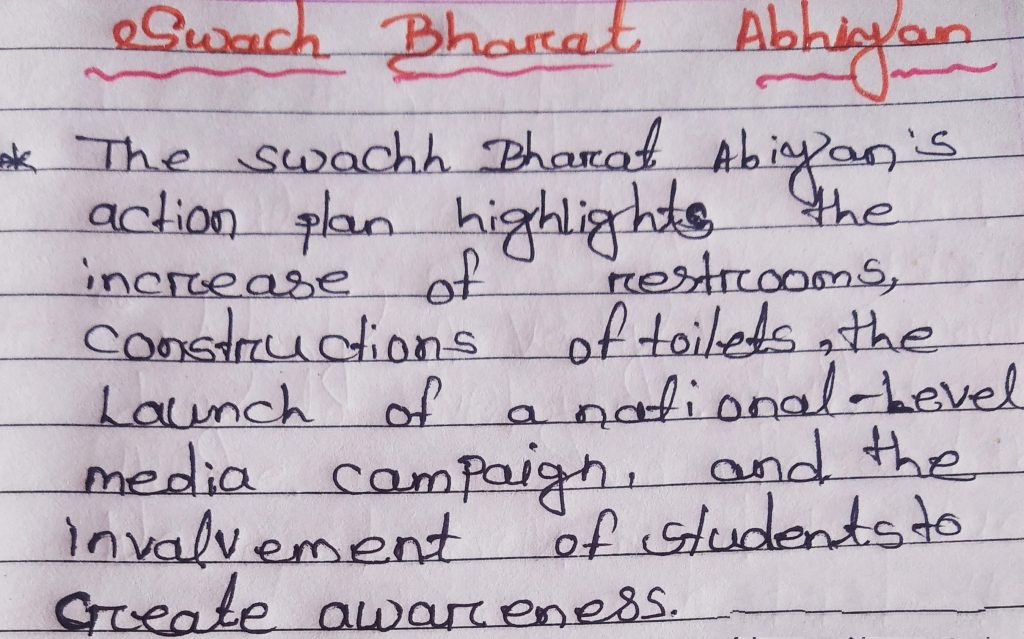 Swach Bharat Abhiyan
* The swachh Bharat Abiyan's
action plan highlights the
increase of restrooms,
constructions of toilets, the
Launch of a national-Level
media campaign, and the
invalvement of students to
Create awareness.